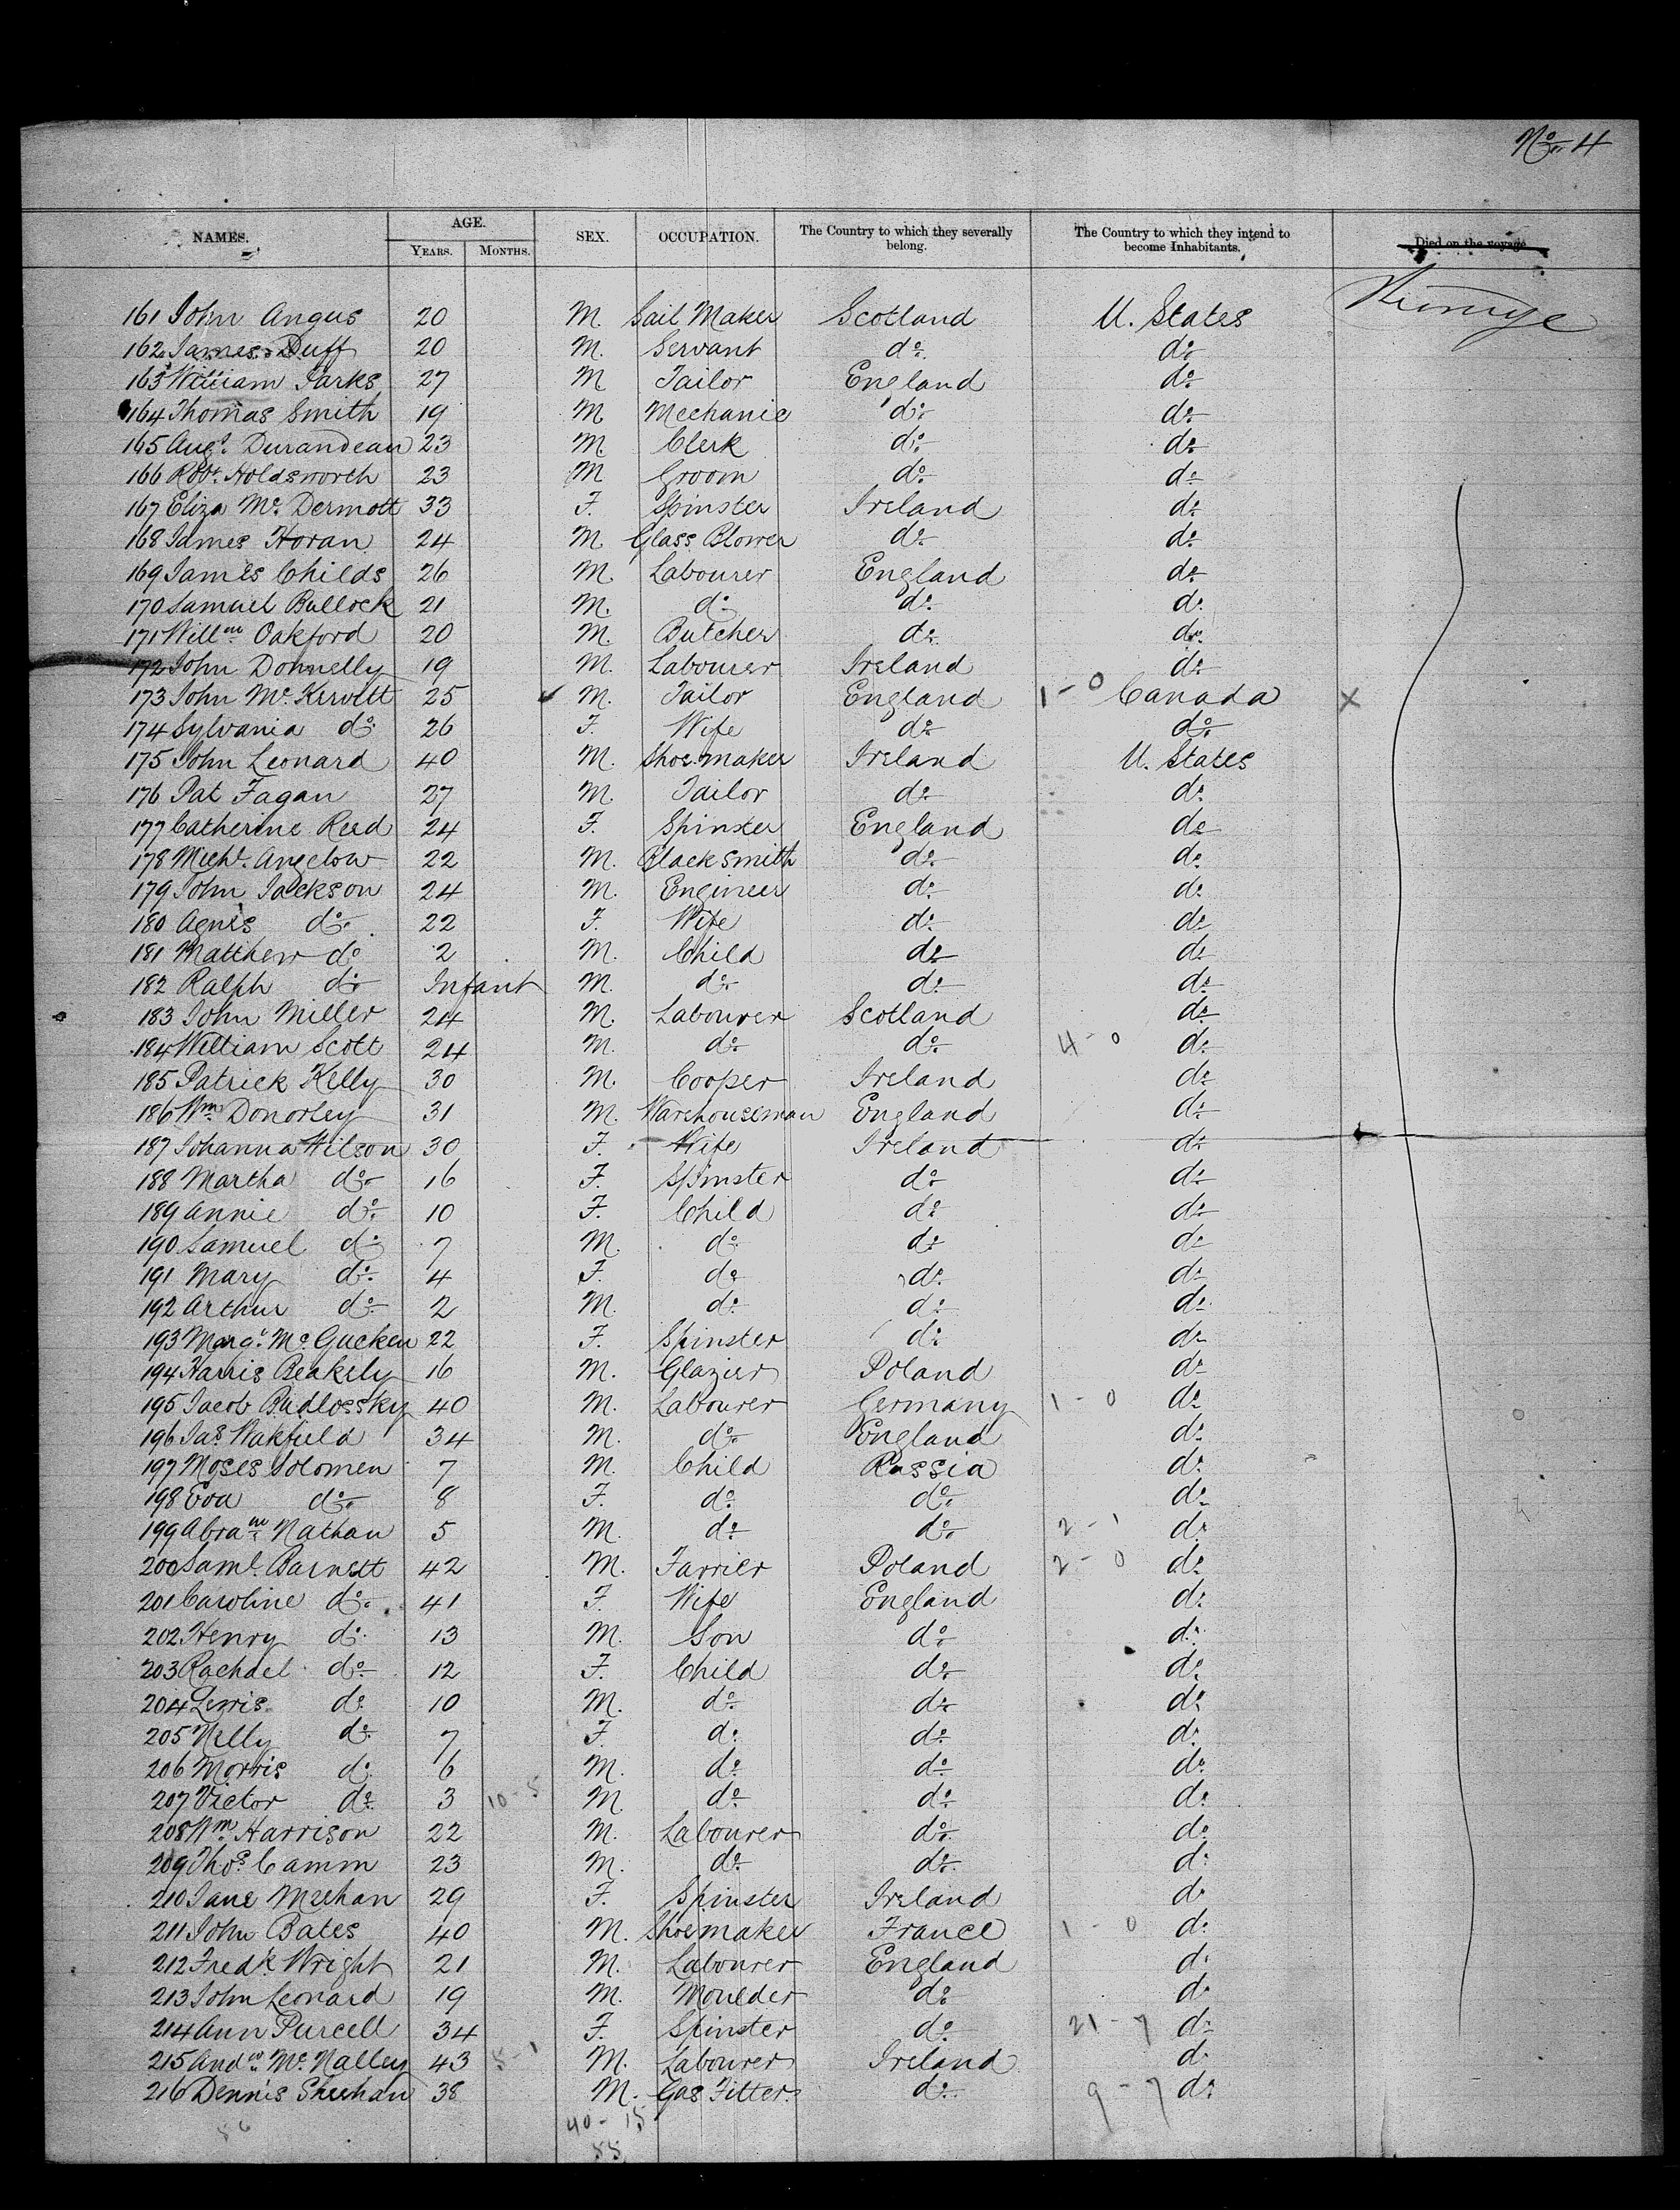 No. 4
NAMES. AGE. YEARS. MONTHS. SEX. OCCUPATION. The Country to which they severally belong. The Country to which they intend to become Inhabitants. Died on the voyage
161 John Angus 20 M. Sail Maker Scotland U. States
162 James Duff 20 M. Servant do. do.
163 William Parks 27 M Tailor England do.
164 Thomas Smith 19 M Mechanic do. do.
165 Augs. Durandeau 23 M. Clerk do. do.
166 Robt. Holdsworth 23 M Groom do. do.
167 Eliza Mc. Dermott 33 F. Spinster Ireland do.
168 James Horan 24 M. Glass Blower do. do.
169 James Childs 26 M. Labourer England do.
170 Samuel Bullock 21 M. do. do. do.
171 Willm Oakford 20 M. Butcher do. do.
172 John Donnelly 19 M. Labourer Ireland do.
173 John Mc. Kervitt 25 M. Tailor England 1 - 0 Canada X
174 Sylvania do. 26 F. Wife do. do.
175 John Leonard 40 M. Shoe maker Ireland U. States
176 Pat Fagan 27 M. Tailor do. do.
177 Catherine Reed 24 F. Spinster England do.
178 Michl. Angelow 22 M. Blacksmith do. do.
179 John Jackson 24 M. Engineer do. do.
180 Agnes do. 22 F. Wife do. do.
181 Matthew do. 2 M. Child do. do.
182 Ralph do. Infant M. do. do. do.
183 John Miller 24 M. Labourer Scotland do.
184 William Scott 24 M. do. do. 4 - 0 do.
185 Patrick Kelly 30 M. Cooper Ireland do.
186 Wm. Donorley 31 M. Warehouseman England do.
187 Johanna Wilson 30 F. Wife Ireland do.
188 Martha do. 16 F. Spinster do. do.
189 Annie do. 10 F. Child do. do.
190 Samuel do. 7 M. do. do. do.
191 Mary do. 4 F. do. do. do.
192 Arthur do. 2 M. do. do. do.
193 Margt. Mc. Gucken 22 F. Spinster do. do.
194 Harris Beakely 16 M. Glazier Poland do.
195 Jacob Budlossky 40 M. Labourer Germany 1 - 0 do.
196 Jas. Wakfield 34 M. do. England do.
197 Moses Solomen 7 M. Child Russia do.
198 Eva do. 8 F. do. do. do.
199 Abram Nathan 5 M. do. do. 2 - 1 do.
200 Saml. Barnett 42 M. Farrier Poland 2 - 0 do.
201 Caroline do. 41 F. Wife England do.
202 Henry do. 13 M. Son do. do.
203 Rachael do. 12 F. Child do. do.
204 Lewis do. 10 M. do. do. do.
205 Nelly do. 7 F. do. do. do.
206 Morris do. 6 M. do. do. do.
207 Victor do. 3 10 - 5 M. do. do. do.
208 Wm. Harrison 22 M. Labourer do. do.
209 Thos. Camm 23 M. do. do. do.
210 Jane Meehan 29 F. Spinster Ireland do.
211 John Bates 40 M. Shoemaker France 1 - 0 do.
212 Fredk. Wright 21 M. Labourer England do.
213 John Leonard 19 M. Moulder do. do.
214 Ann Purcell 34 F. Spinster do. 21 - 7 do.
215 Andw. Mc. Nalley 43 5 - 1 M. Labourer Ireland do.
216 Dennis Sheehan 38 M. Gas Fitter do. 9 - 7 do.
56 40 - 15
55